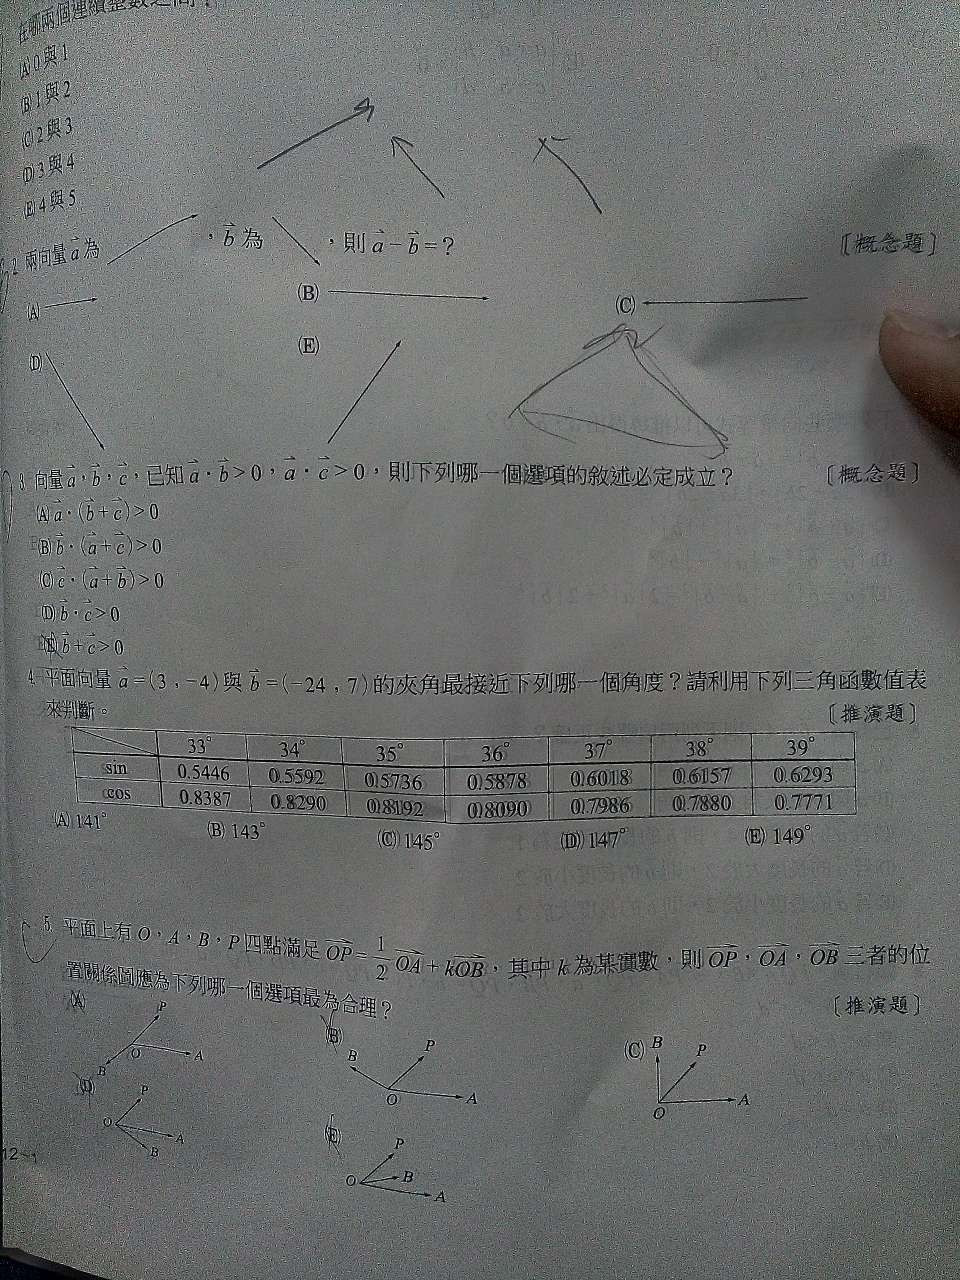 在哪兩個連續整數之間？
(A) 0與1
(B) 1與2
(C) 2與3
(D) 3與4
(E) 4與5
2. 兩向量 a⃗ 為 ，b⃗ 為 ，則 a⃗－b⃗＝？ 〔概念題〕
(A) (B) (C)
(D) (E)
3. 向量 a⃗，b⃗，c⃗，已知 a⃗・b⃗＞0，a⃗・c⃗＞0，則下列哪一個選項的敘述必定成立？ 〔概念題〕
(A) a⃗・(b⃗＋c⃗)＞0
(B) b⃗・(a⃗＋c⃗)＞0
(C) c⃗・(a⃗＋b⃗)＞0
(D) b⃗・c⃗＞0
(E) b⃗＋c⃗＞0
4. 平面向量 a⃗＝(3，－4)與 b⃗＝(－24，7)的夾角最接近下列哪一個角度？請利用下列三角函數值表
來判斷。 〔推演題〕
33° 34° 35° 36° 37° 38° 39°
sin 0.5446 0.5592 0.5736 0.5878 0.6018 0.6157 0.6293
cos 0.8387 0.8290 0.8192 0.8090 0.7986 0.7880 0.7771
(A) 141° (B) 143° (C) 145° (D) 147° (E) 149°
5. 平面上有 O，A，B，P 四點滿足 OP⃗＝1/2 OA⃗＋kOB⃗，其中 k 為某實數，則 OP⃗，OA⃗，OB⃗ 三者的位
置關係圖應為下列哪一個選項最為合理？ 〔推演題〕
(A) P O A B
(B) B P O A
(C) B P O A
(D) P O A B
(E) P O B A
12－1